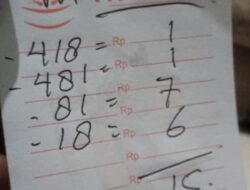 - 418 = Rp 1
- 481 = Rp 1
- 81 = Rp 7
- 18 = Rp 6
Rp
Rp 15.